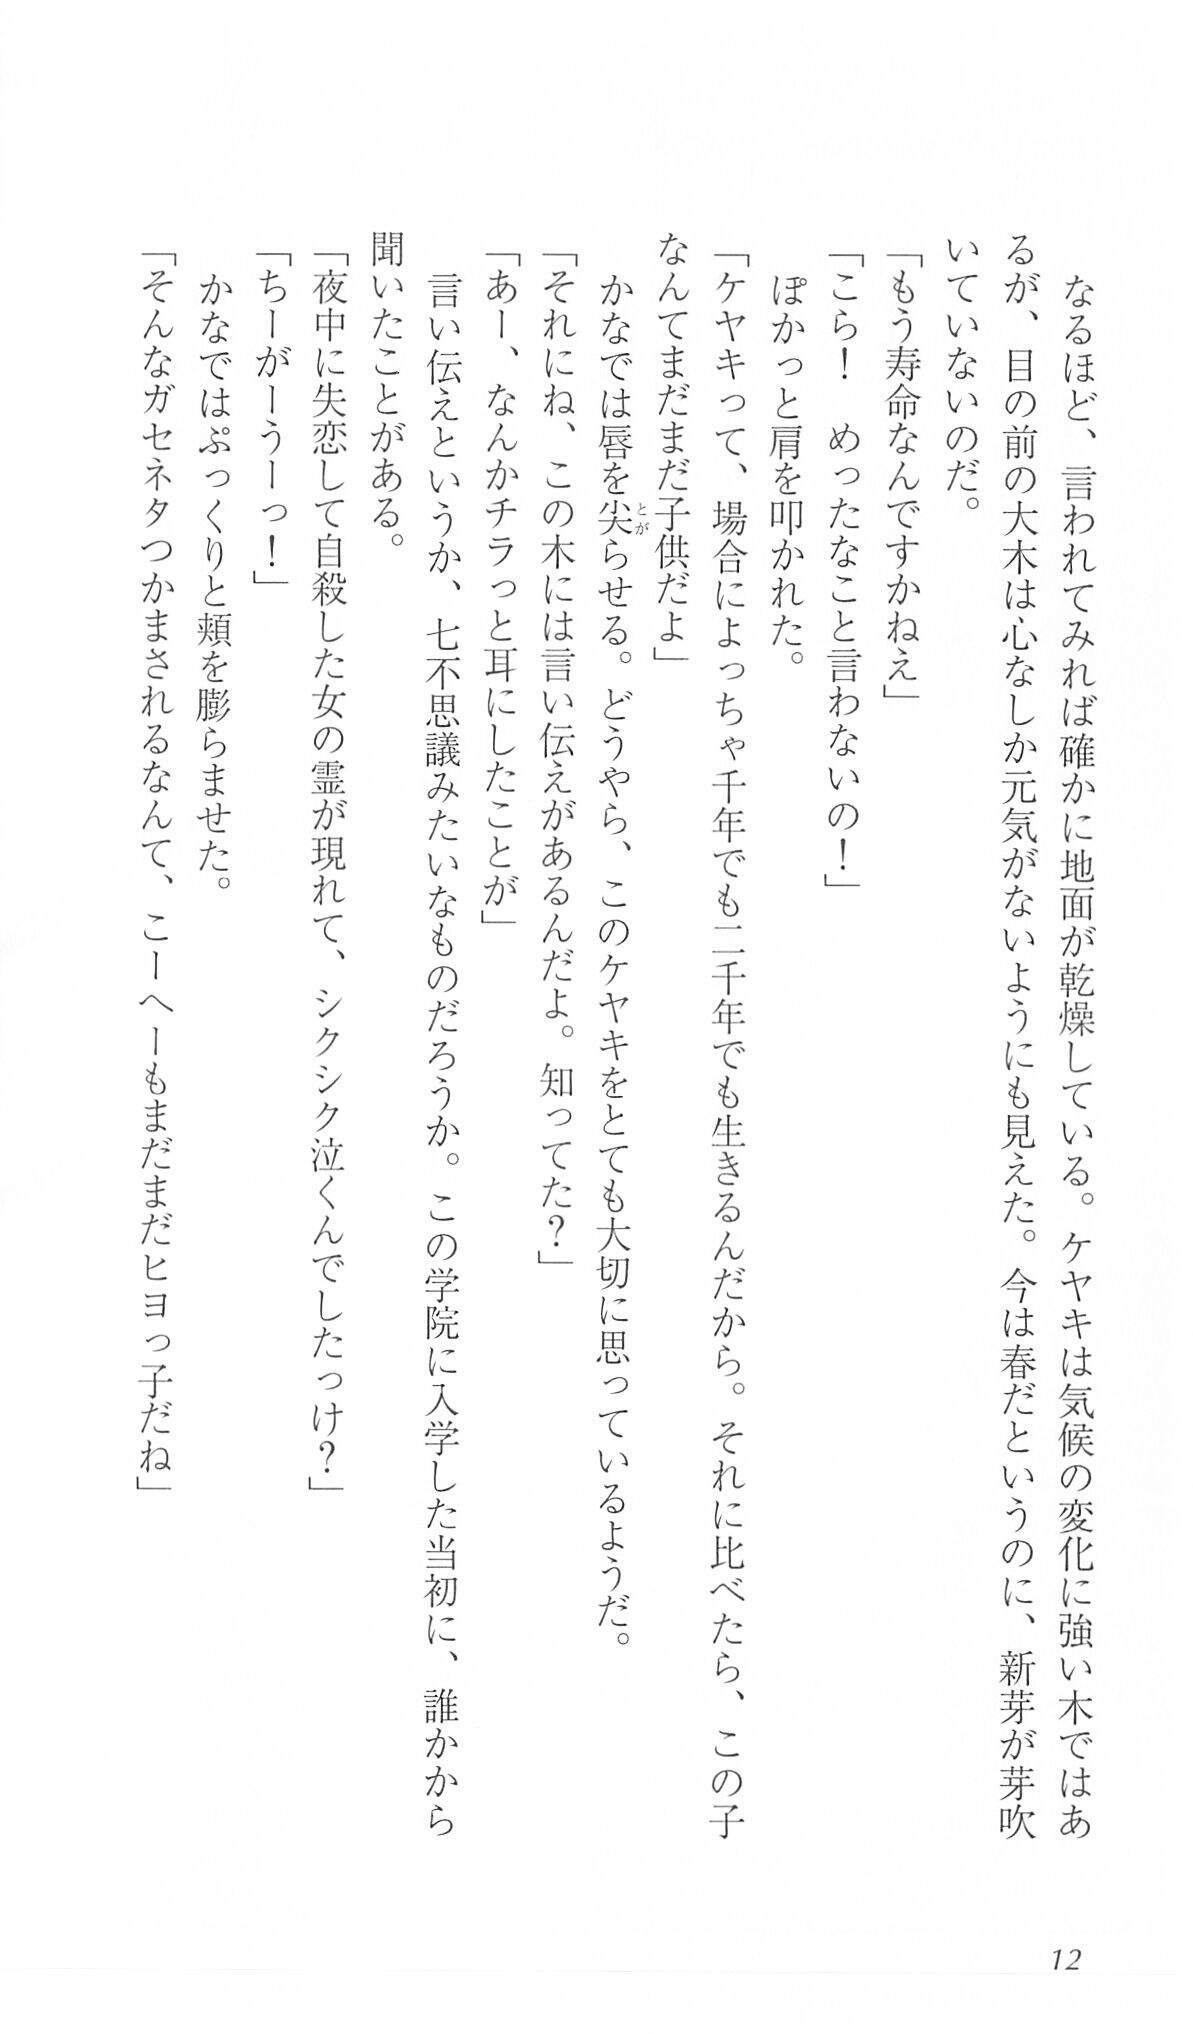 なるほど、言われてみれば確かに地面が乾燥している。ケヤキは気候の変化に強い木ではあ
るが、目の前の大木は心なしか元気がないようにも見えた。今は春だというのに、新芽が芽吹
いていないのだ。
「もう寿命なんですかねえ」
「こら！　めったなこと言わないの！」
　ぽかっと肩を叩かれた。
「ケヤキって、場合によっちゃ千年でも二千年でも生きるんだから。それに比べたら、この子
なんてまだまだ子供だよ」
　かなでは唇を尖らせる。どうやら、このケヤキをとても大切に思っているようだ。
とが
「それにね、この木には言い伝えがあるんだよ。知ってた？」
「あー、なんかチラっと耳にしたことが」
　言い伝えというか、七不思議みたいなものだろうか。この学院に入学した当初に、誰かから
聞いたことがある。
「夜中に失恋して自殺した女の霊が現れて、シクシク泣くんでしたっけ？」
「ちーがーうーっ！」
　かなではぷっくりと頬を膨らませた。
「そんなガセネタつかまされるなんて、こーへーもまだまだヒヨっ子だね」
12